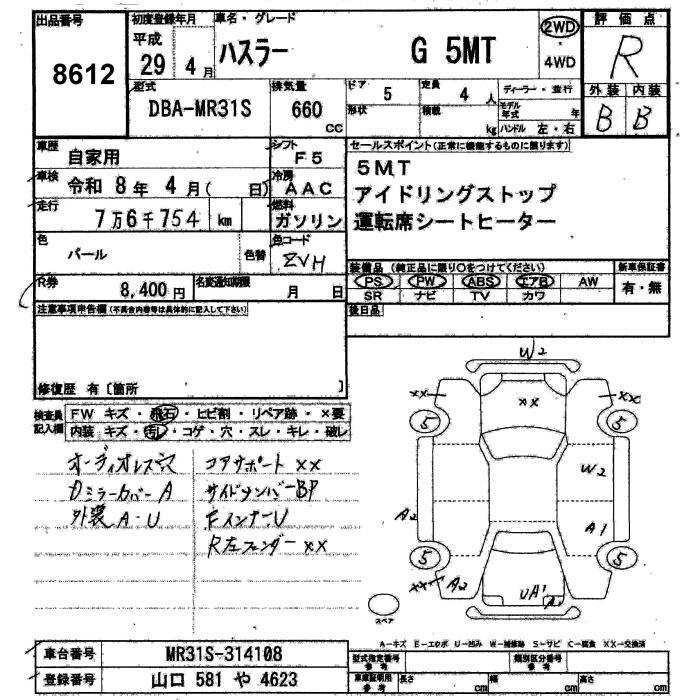 出品番号 8612
初度登録年月 平成 29 4月
車名・グレード ハスラー G 5MT
2WD・4WD
評価点 R
外装 B 内装 B
型式 DBA-MR31S
排気量 660 cc
ドア 形状 5
定員 4 人
積載 kg
ディーラー・並行
モデル年式 年
ハンドル 左・右
車歴 自家用
シフト F5
車検 令和 8年 4月( 日)
冷房 AAC
走行 7万6千754 km
燃料 ガソリン
色 パール 色替
色コード ZVH
R券 8,400円
名変通知期限 月 日
セールスポイント(正常に機能するものに限ります)
5MT
アイドリングストップ
運転席シートヒーター
装備品(純正品に限り○をつけてください)
PS PW ABS エアB AW
SR ナビ TV カワ
新車保証書 有・無
後日品
注意事項申告欄(不具合内容等は具体的に記入して下さい)
修復歴 有〔箇所 〕
検査員記入欄
FW キズ・飛石・ヒビ割・リペア跡・×要
内装 キズ・汚レ・コゲ・穴・スレ・キレ・破レ
オーディオレス
Dミラーカバー A
外装 A・U
コアサポート XX
サイドメンバー BP
FインナーU
R左フェンダー XX
W2
XX XX XX
5 5
W2
A2 A1
5 5
XX A2 UA1
スペア
A-キズ E-エクボ U-凹み W-補修跡 S-サビ C-腐食 XX-交換済
車台番号 MR31S-314108
登録番号 山口 581 や 4623
型式指定番号 参考
類別区分番号 参考
車庫証明用 参考 長さ cm 幅 cm 高さ cm